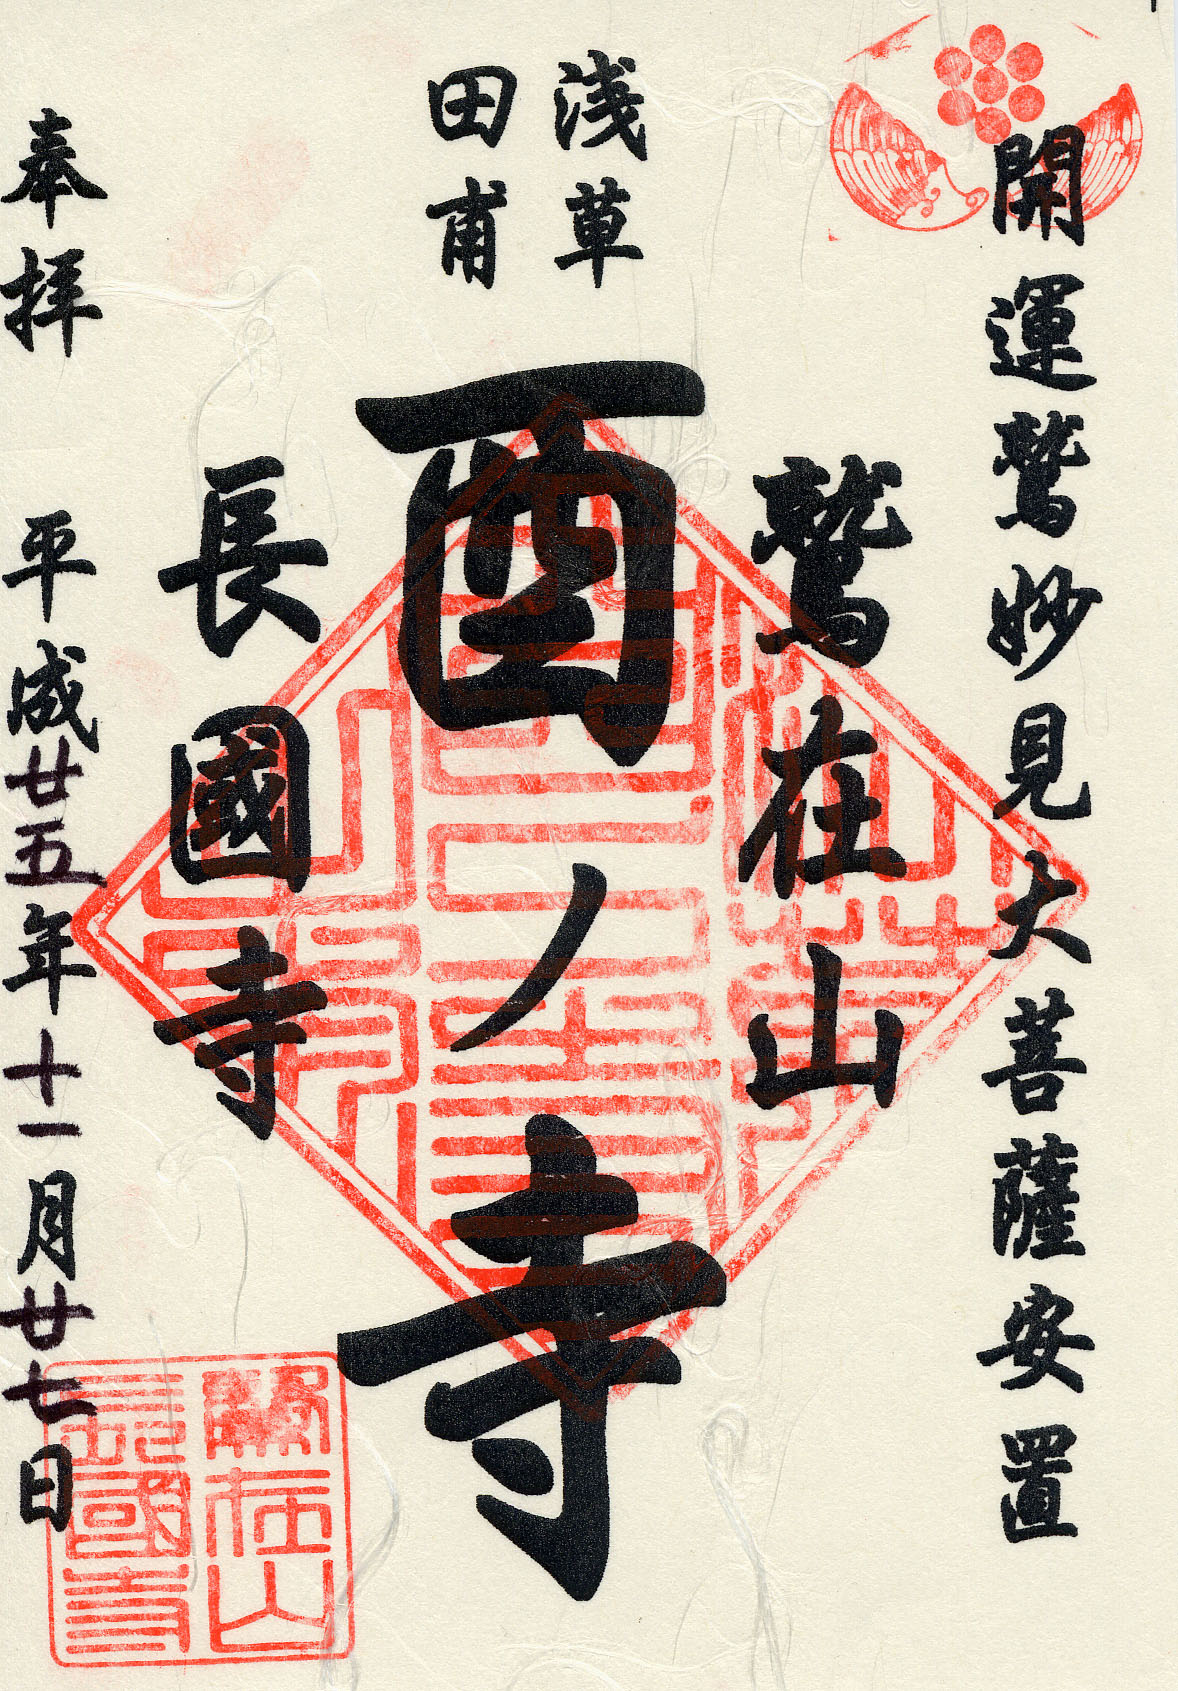 開運鷲妙見大菩薩安置
鷲在山
浅草
田甫
酉ノ寺
長國寺
奉拝
平成廿五年十一月廿七日
鷲在山
長國寺